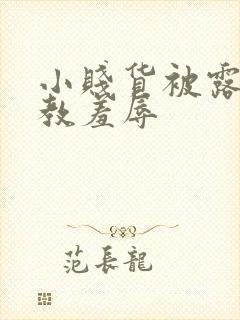 小賤货被露
教羞辱
范長龍